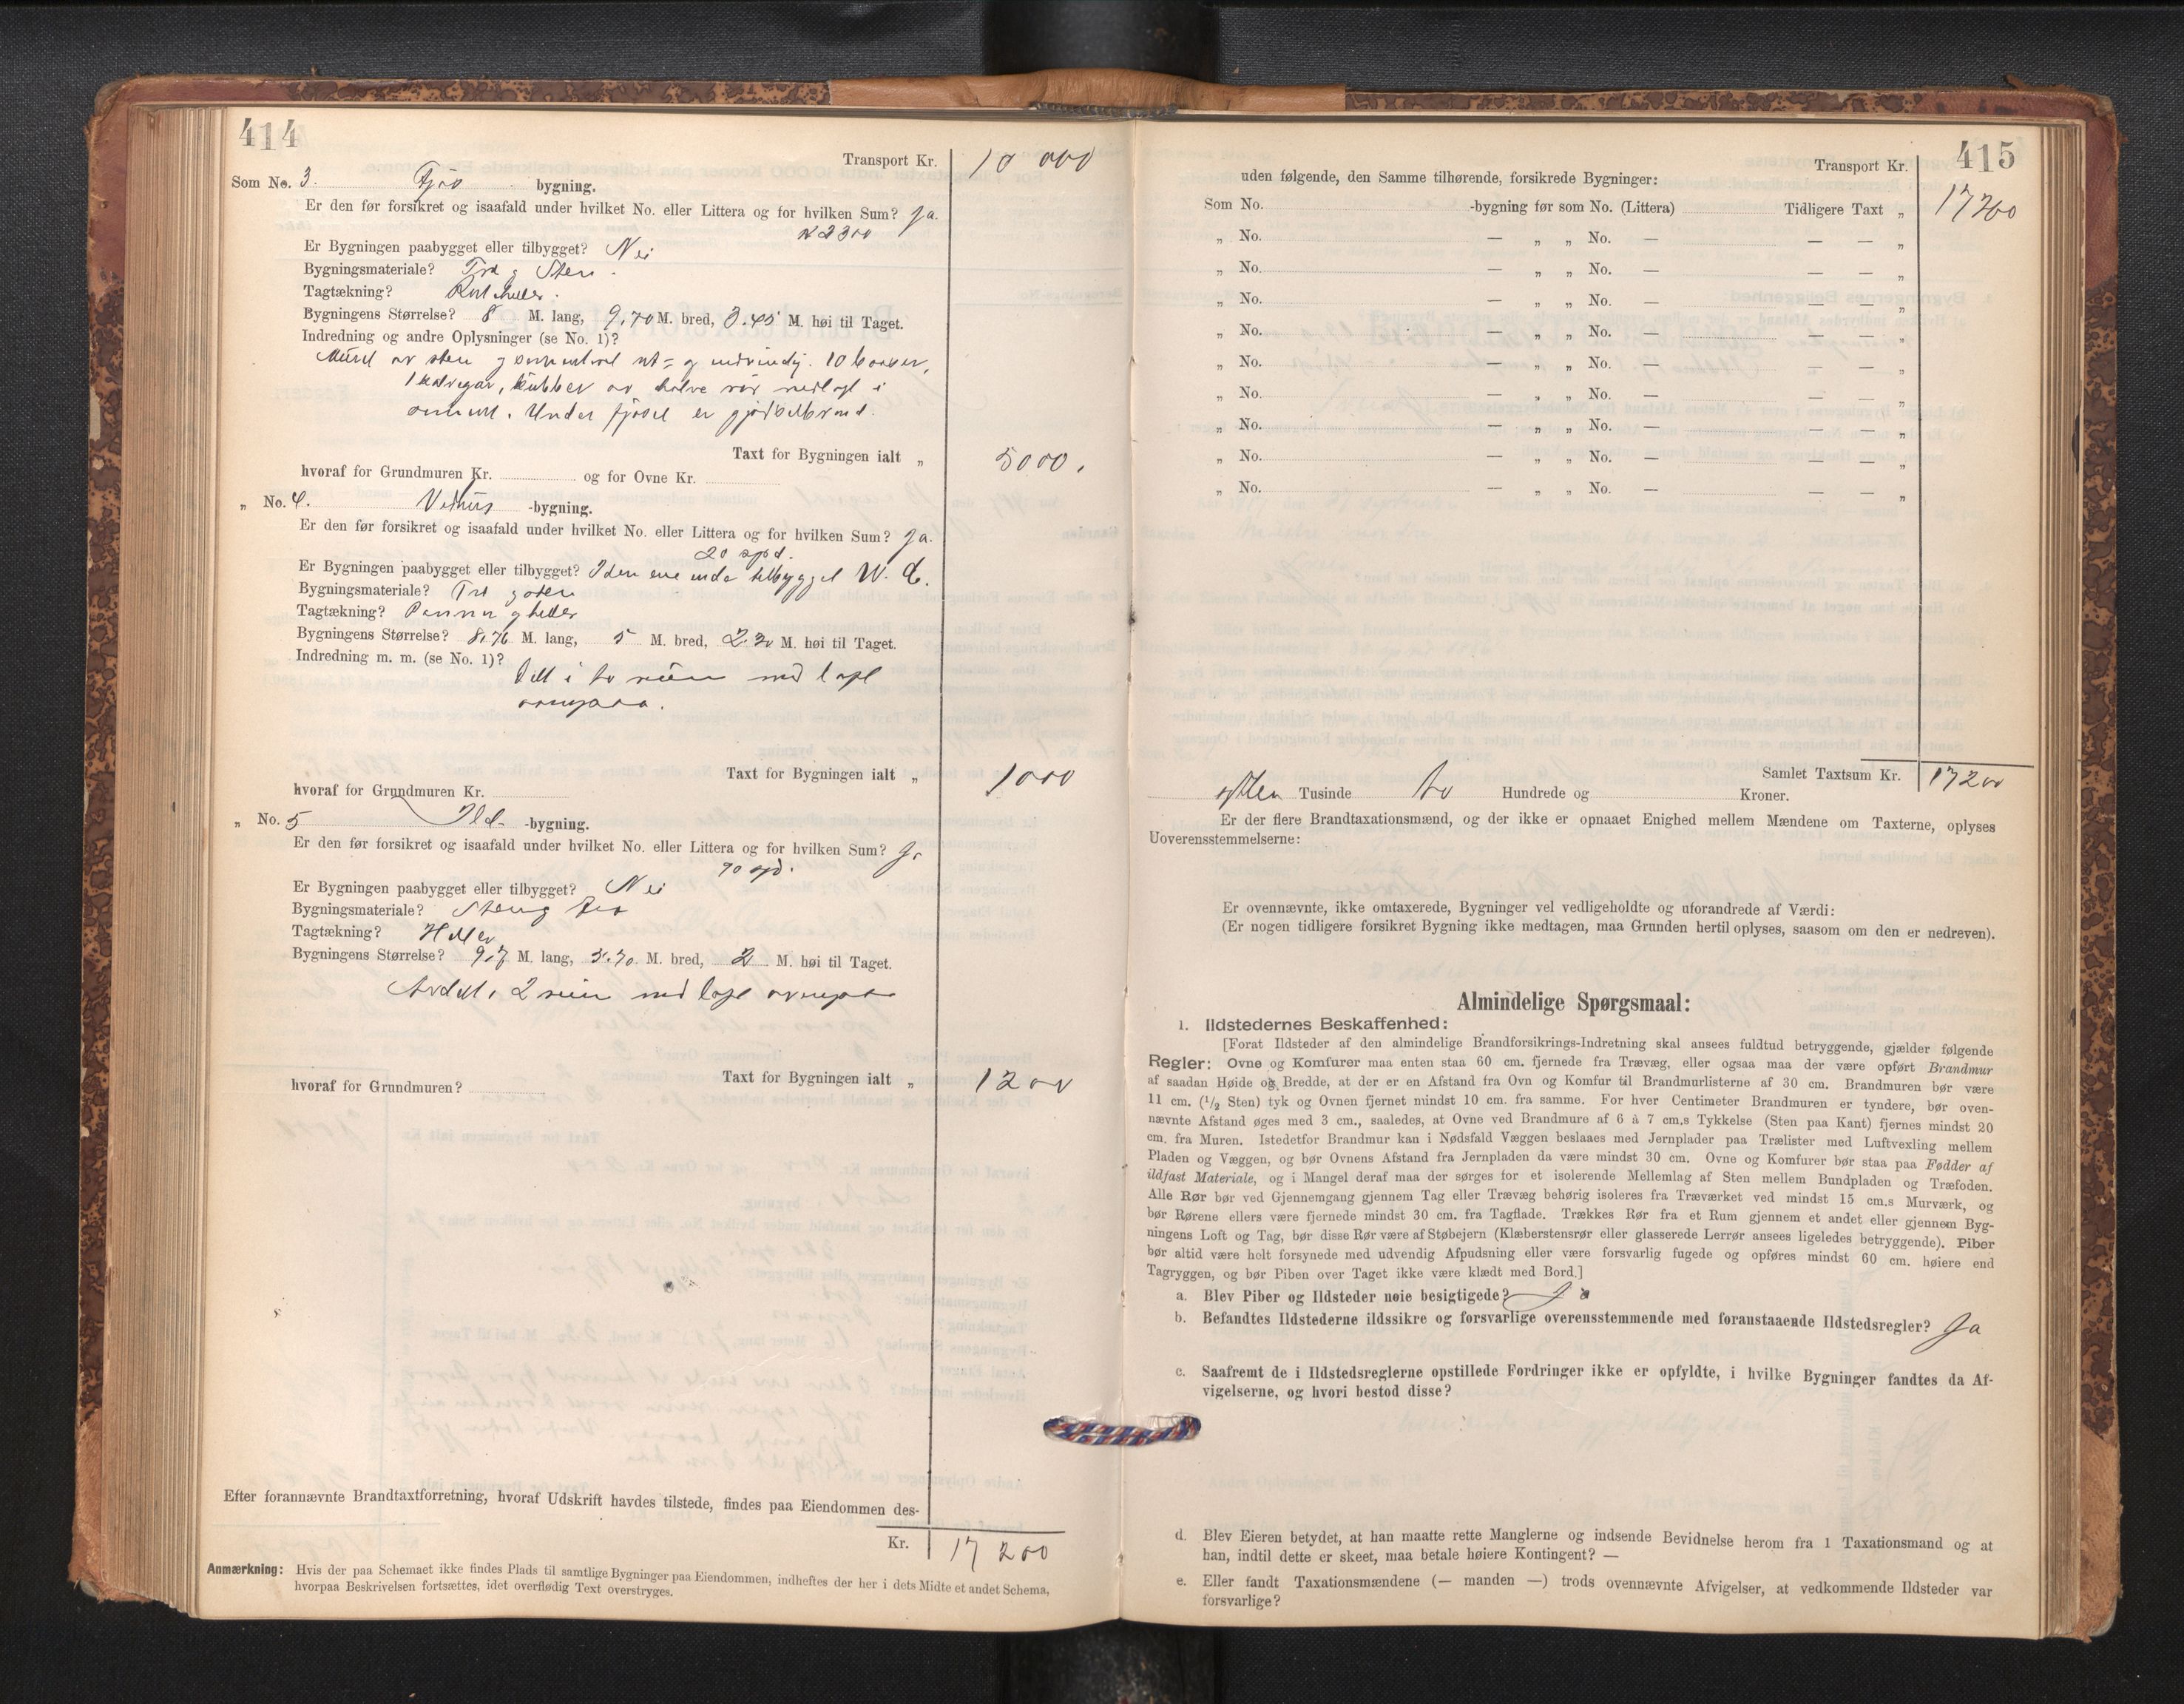 414
Transport Kr. 10 000
Som No. 3. Fjøs bygning.
Er den før forsikret og isaafald under hvilket No. eller Littera og for hvilken Sum? Ja.
2300
Er Bygningen paabygget eller tilbygget? Nei
Bygningsmateriale? Træ g Sten.
Tagtækning? heller.
Bygningens Størrelse? 8 M. lang, 9,70 M. bred, 3.45 M. høi til Taget.
Indredning og andre Oplysninger (se No. 1)?
av sten g ut= g indvendig. 10 baaser,
1 kalvegar, av halve rør nedlagt i
Under fjøset er
Taxt for Bygningen ialt „ 5000.
hvoraf for Grundmuren Kr. og for Ovne Kr.
„ No. 4. Vedhus -bygning.
Er den før forsikret og isaafald under hvilket No. eller Littera og for hvilken Sum? Ja.
20 spd.
Er Bygningen paabygget eller tilbygget? I den ene ende tilbygget W. C.
Bygningsmateriale? Træ g sten
Tagtækning? Panner g heller
Bygningens Størrelse? 8,76 M. lang, 5 M. bred, 2.30 M. høi til Taget.
Indredning m. m. (se No. 1)?
Delt i to rum med loft
ovenpaa.
Taxt for Bygningen ialt „ 1000
hvoraf for Grundmuren Kr.
„ No. 5 Ild- -bygning.
Er den før forsikret og isaafald under hvilket No. eller Littera og for hvilken Sum? Ja
90 spd.
Er Bygningen paabygget eller tilbygget? Nei
Bygningsmateriale? Sten g træ
Tagtækning? Heller
Bygningens Størrelse? 9,7 M. lang, 5.70 M. bred, 2 M. høi til Taget.
Avdelt i 2 rum med loft ovenpaa
Taxt for Bygningen ialt „ 1200
hvoraf for Grundmuren?
Efter forannævnte Brandtaxtforretning, hvoraf Udskrift havdes tilstede, findes paa Eiendommen des-
Kr. 17 200
Anmærkning: Hvis der paa Schemaet ikke findes Plads til samtlige Bygninger paa Eiendommen, indheftes der her i dets Midte et andet Schema,
hvorpaa Beskrivelsen fortsættes, idet overflødig Text overstryges.
415
Transport Kr. 17200
uden følgende, den Samme tilhørende, forsikrede Bygninger:
Som No. -bygning før som No. (Littera) Tidligere Taxt „
„ No. — „ „ No. — — — „
„ No. — „ „ No. — — — „
„ No. — „ „ No. — — — „
„ No. — „ „ No. — — — „
„ No. — „ „ No. — — — „
„ No. — „ „ No. — — — „
„ No. — „ „ No. — — — „
„ No. — „ „ No. — — — „
„ No. — „ „ No. — — — „
Samlet Taxtsum Kr. 17200
sytten Tusinde to Hundrede og Kroner.
Er der flere Brandtaxationsmænd, og der ikke er opnaaet Enighed mellem Mændene om Taxterne, oplyses
Uoverensstemmelserne:
Er ovennævnte, ikke omtaxerede, Bygninger vel vedligeholdte og uforandrede af Værdi:
(Er nogen tidligere forsikret Bygning ikke medtagen, maa Grunden hertil oplyses, saasom om den er nedreven).
Almindelige Spørgsmaal:
1. Ildstedernes Beskaffenhed:
[Forat Ildsteder af den almindelige Brandforsikrings-Indretning skal ansees fuldtud betryggende, gjælder følgende
Regler: Ovne og Komfurer maa enten staa 60 cm. fjernede fra Trævæg, eller ogsaa maa der være opført Brandmur
af saadan Høide og Bredde, at der er en Afstand fra Ovn og Komfur til Brandmurlisterne af 30 cm. Brandmuren bør være
11 cm. (1/2 Sten) tyk og Ovnen fjernet mindst 10 cm. fra samme. For hver Centimeter Brandmuren er tyndere, bør oven-
nævnte Afstand øges med 3 cm., saaledes, at Ovne ved Brandmure af 6 à 7 cm.s Tykkelse (Sten paa Kant) fjernes mindst 20
cm. fra Muren. Istedetfor Brandmur kan i Nødsfald Væggen beslaaes med Jernplader paa Trælister med Luftvexling mellem
Pladen og Væggen, og bør Ovnens Afstand fra Jernpladen da være mindst 30 cm. Ovne og Komfurer bør staa paa Fødder af
ildfast Materiale, og i Mangel deraf maa der sørges for et isolerende Mellemlag af Sten mellem Bundpladen og Træfoden.
Alle Rør bør ved Gjennemgang gjennem Tag eller Trævæg behørig isoleres fra Træværket ved mindst 15 cm.s Murværk, og
bør Rørene ellers være fjernede mindst 30 cm. fra Tagflade. Trækkes Rør fra et Rum gjennem et andet eller gjennem Byg-
ningens Loft og Tag, bør disse Rør være af Støbejern (Klæberstensrør eller glasserede Lerrør ansees ligeledes betryggende). Piber
bør altid være helt forsynede med udvendig Afpudsning eller være forsvarlig fugede og opføres mindst 60 cm. høiere end
Tagryggen, og bør Piben over Taget ikke være klædt med Bord.]
a. Blev Piber og Ildsteder nøie besigtigede? Ja
b. Befandtes Ildstederne ildssikre og forsvarlige overensstemmende med foranstaaende Ildstedsregler? Ja
c. Saafremt de i Ildstedsreglerne opstillede Fordringer ikke er opfyldte, i hvilke Bygninger fandtes da Af-
vigelserne, og hvori bestod disse?
d. Blev Eieren betydet, at han maatte rette Manglerne og indsende Bevidnelse herom fra 1 Taxationsmand og at
han, indtil dette er skeet, maa betale høiere Kontingent? —
e. Eller fandt Taxationsmændene (— manden —) trods ovennævnte Afvigelser, at vedkommende Ildsteder var
forsvarlige?